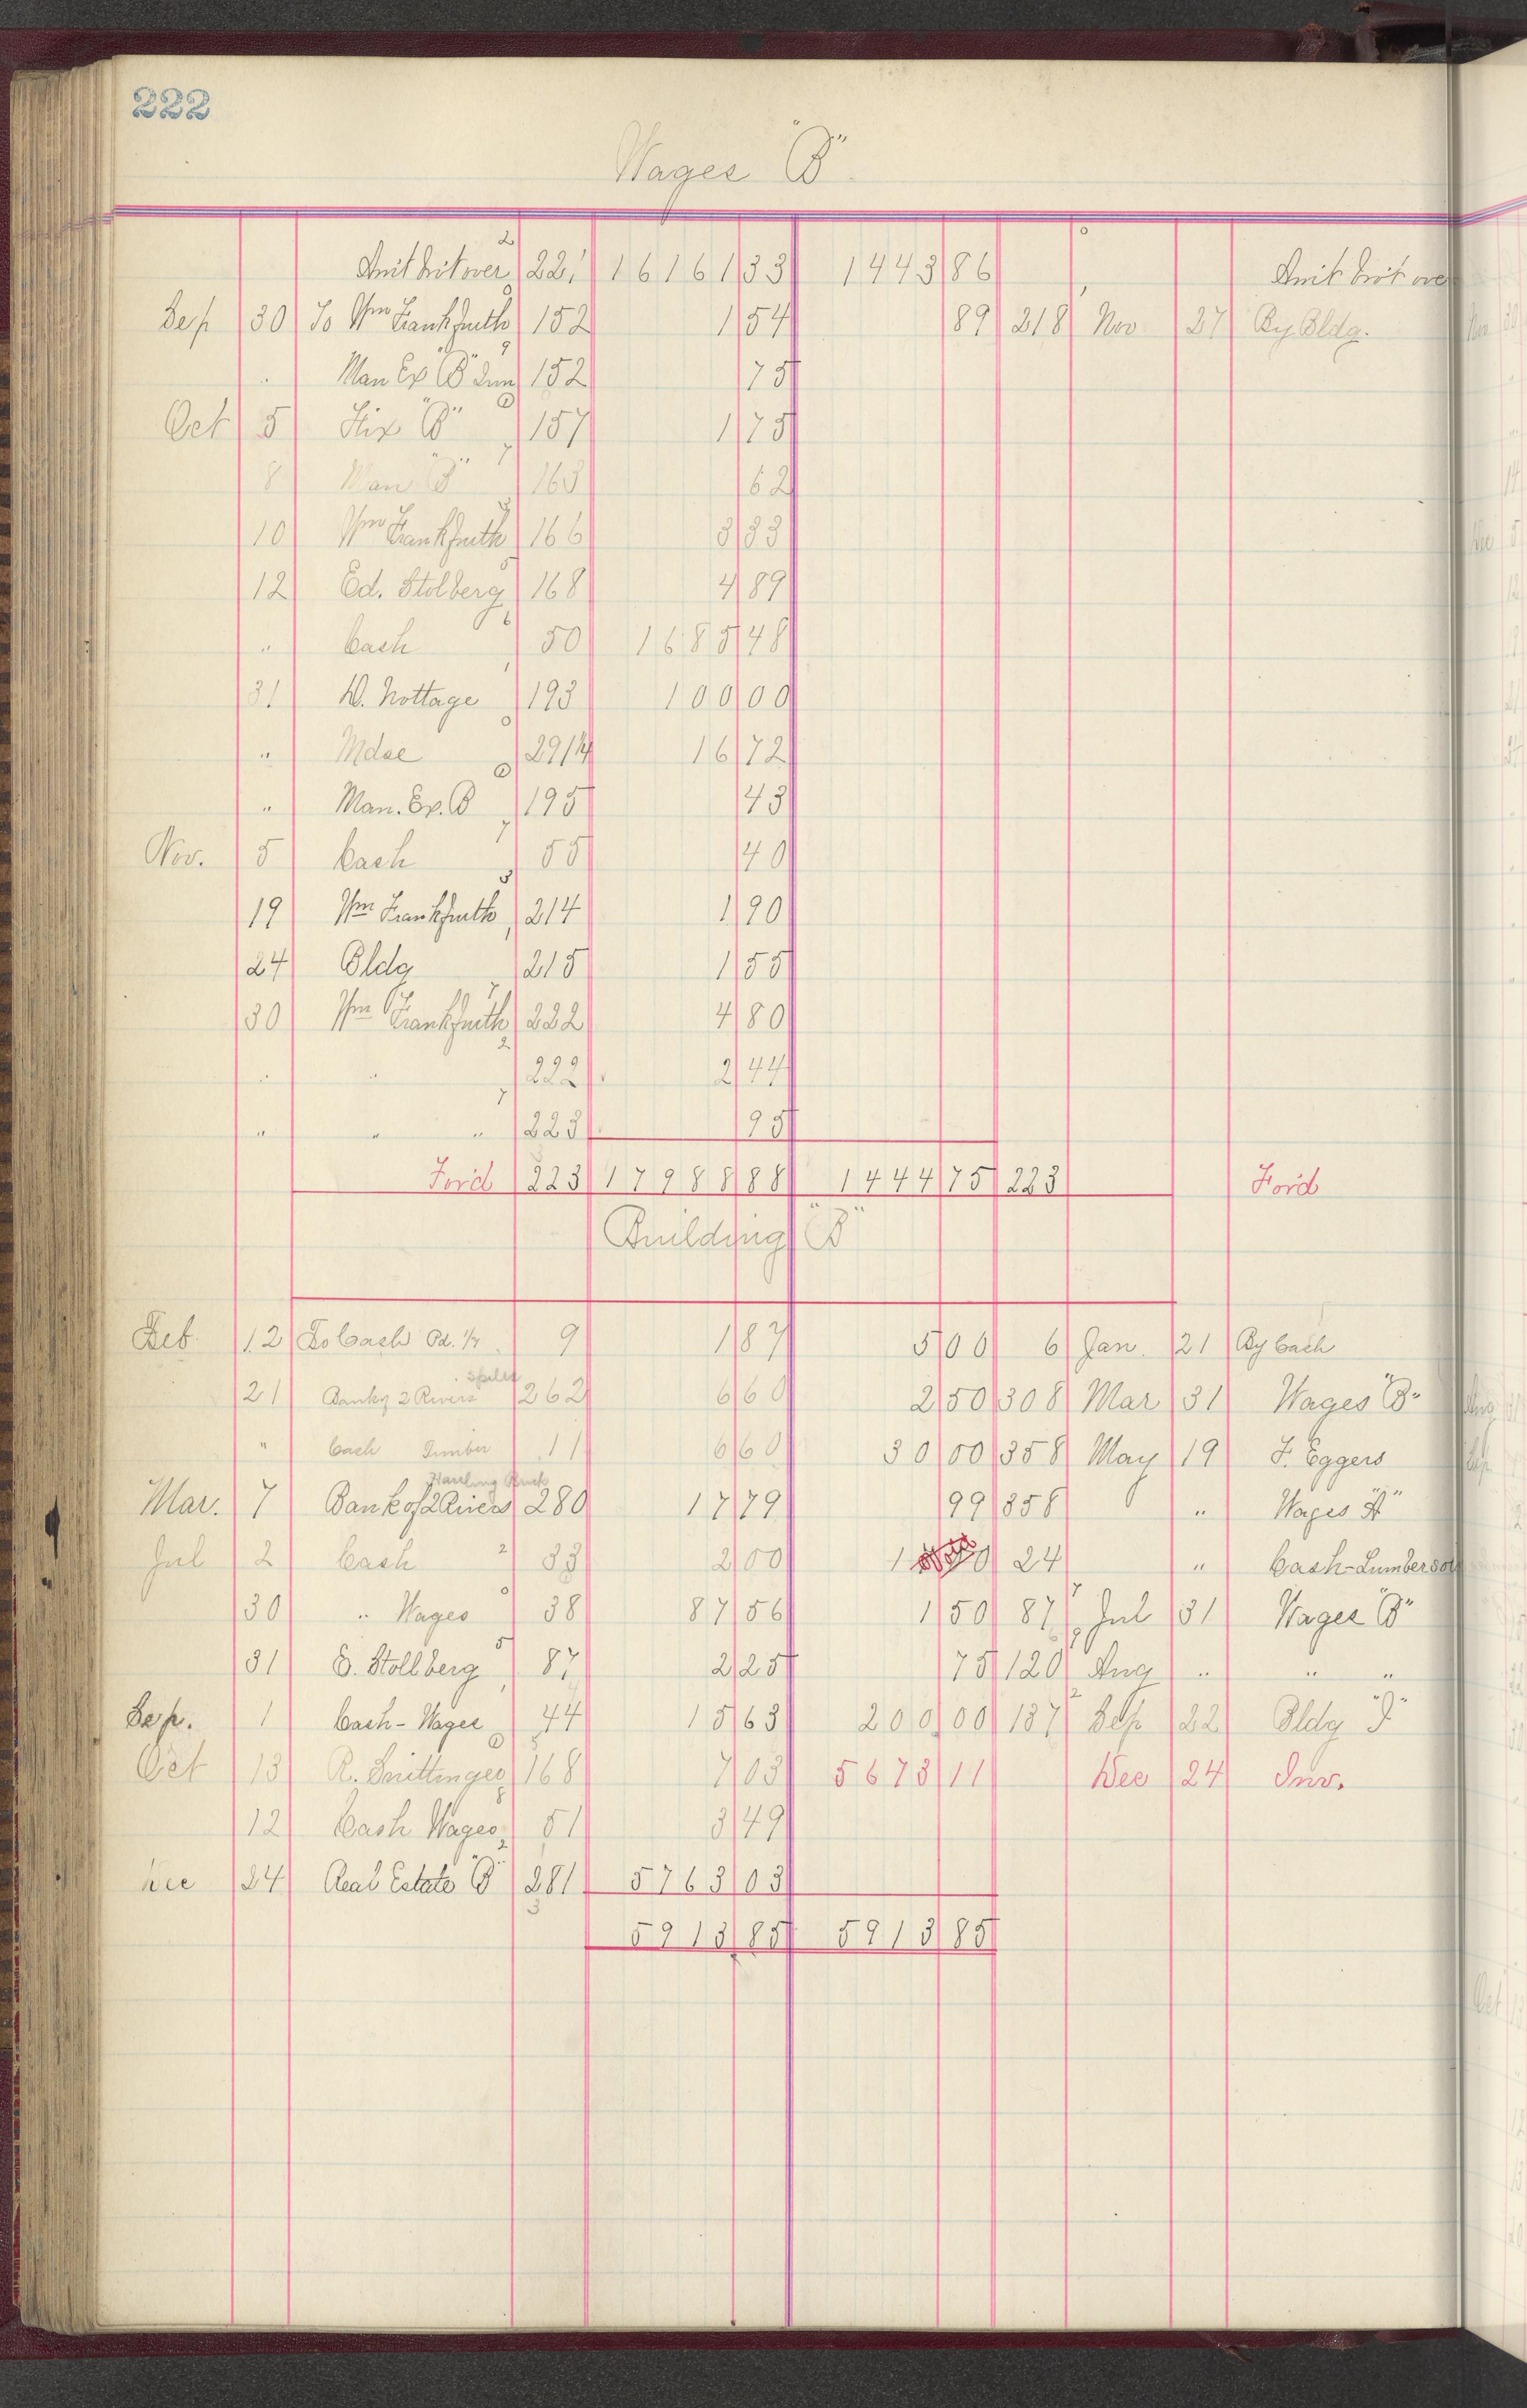 222
Wages "B"
Amt brt over 221 16161 33 1443 86 Amt brot over
Sep 30 To Wm Frankfurth 152 1 54 89 218 Nov 27 By Bldg.
" Man Ex "B" 152 75
Oct 5 Fix "B" 157 1 75
8 Man "B" 163 62
10 Wm Frankfurth 166 3 33
12 Ed. Stolberg 168 4 89
" Cash 50 1685 48
31 D. Nottage 193 100 00
" Mdse 291/4 16 72
" Man. Ex. B 195 43
Nov. 5 Cash 55 40
19 Wm Frankfurth 214 1 90
24 Bldg 215 1 55
30 Wm Frankfurth 222 4 80
" " 222 2 44
" " " 223 95
For'd 223 17988 88 1444 75 223 For'd
Building "B"
Feb 12 To Cash Pd. 1/7 9 1 87 5 00 6 Jan. 21 By Cash
Spiles
21 Bank of 2 Rivers 262 6 60 2 50 308 Mar 31 Wages "B"
" Cash Timber 11 6 60 30 00 358 May 19 F. Eggers
Hauling
Mar. 7 Bank of 2 Rivers 280 17 79 99 358 " Wages "A"
Jul 2 Cash 33 2 00 Void 24 " Cash-Lumber
30 " Wages 38 87 56 1 50 87 Jul 31 Wages "B"
31 E. Stollberg 87 2 25 75 120 Aug " " "
Sep. 1 Cash-Wages 44 15 63 200 00 137 Sep 22 Bldg "J"
Oct 13 R. 168 7 03 5673 11 Dec 24 Inv.
12 Cash Wages 51 3 49
Dec 24 Real Estate "B" 281 5763 03
5913 85 5913 85